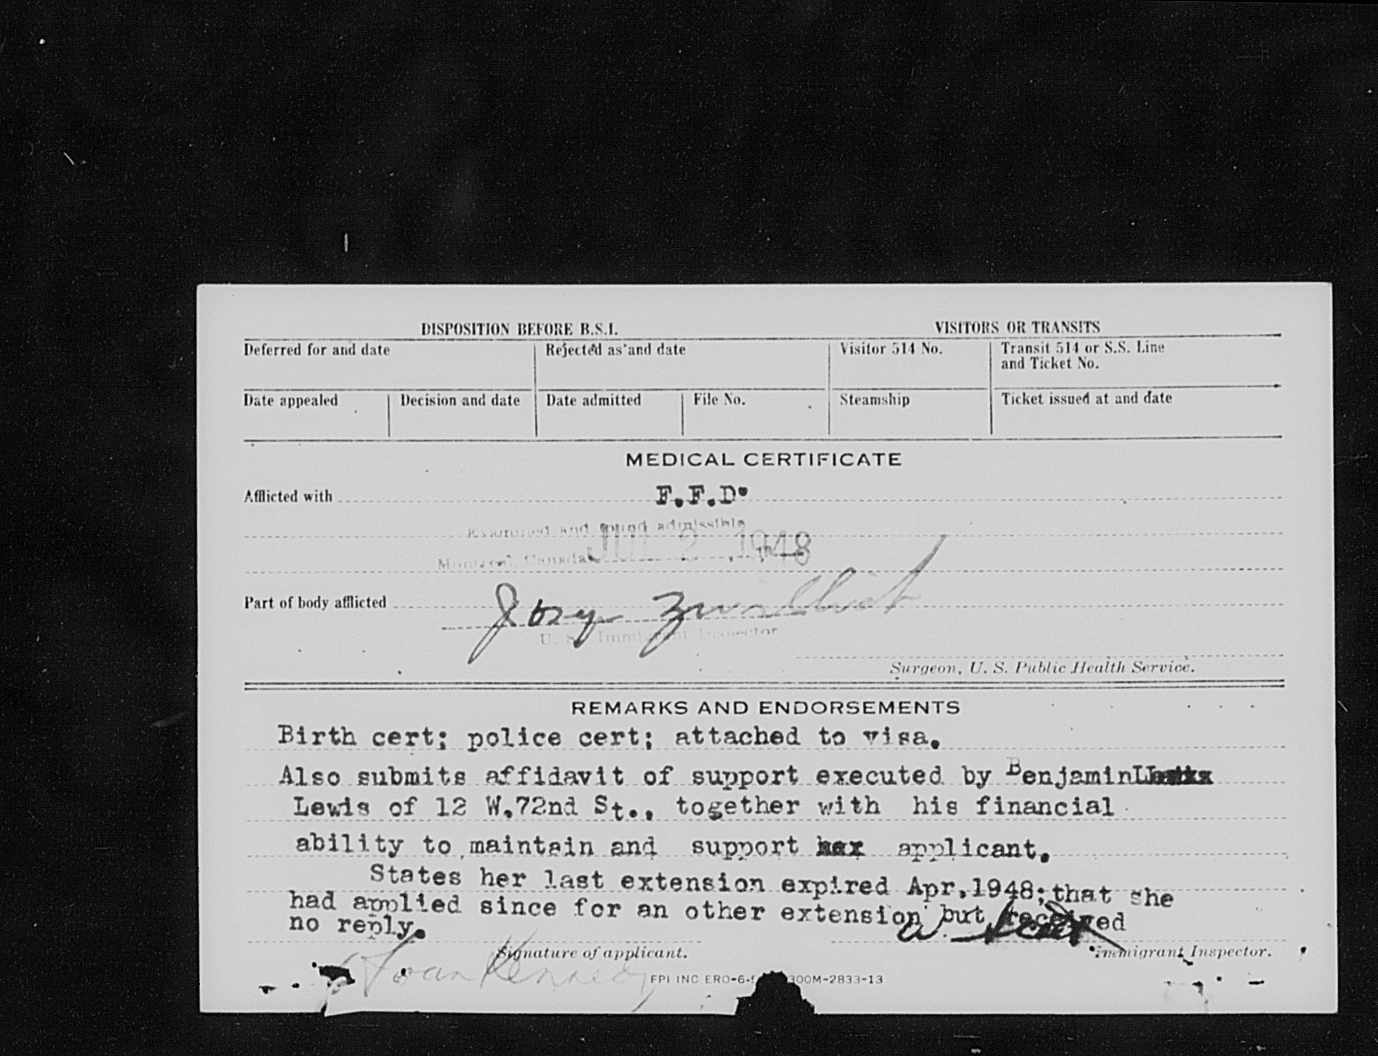 DISPOSITION BEFORE B.S.I. VISITORS OR TRANSITS
Deferred for and date Rejected as and date Visitor 514 No. Transit 514 or S.S. Line
and Ticket No.
Date appealed Decision and date Date admitted File No. Steamship Ticket issued at and date
MEDICAL CERTIFICATE
Afflicted with F.F.D.
Examined and found admissible
Montreal Canada JUL 2 1948
Part of body afflicted
U. S. Immigrant Inspector
Surgeon, U. S. Public Health Service.
REMARKS AND ENDORSEMENTS
Birth cert; police cert; attached to visa.
Also submits affidavit of support executed by Benjamin
Lewis of 12 W.72nd St., together with his financial
ability to maintain and support applicant.
States her last extension expired Apr.1948; that she
had applied since for an other extension but received
no reply.
Signature of applicant. Immigrant Inspector.
Joan Kennedy
FPI INC ERO-6- 300M-2833-13